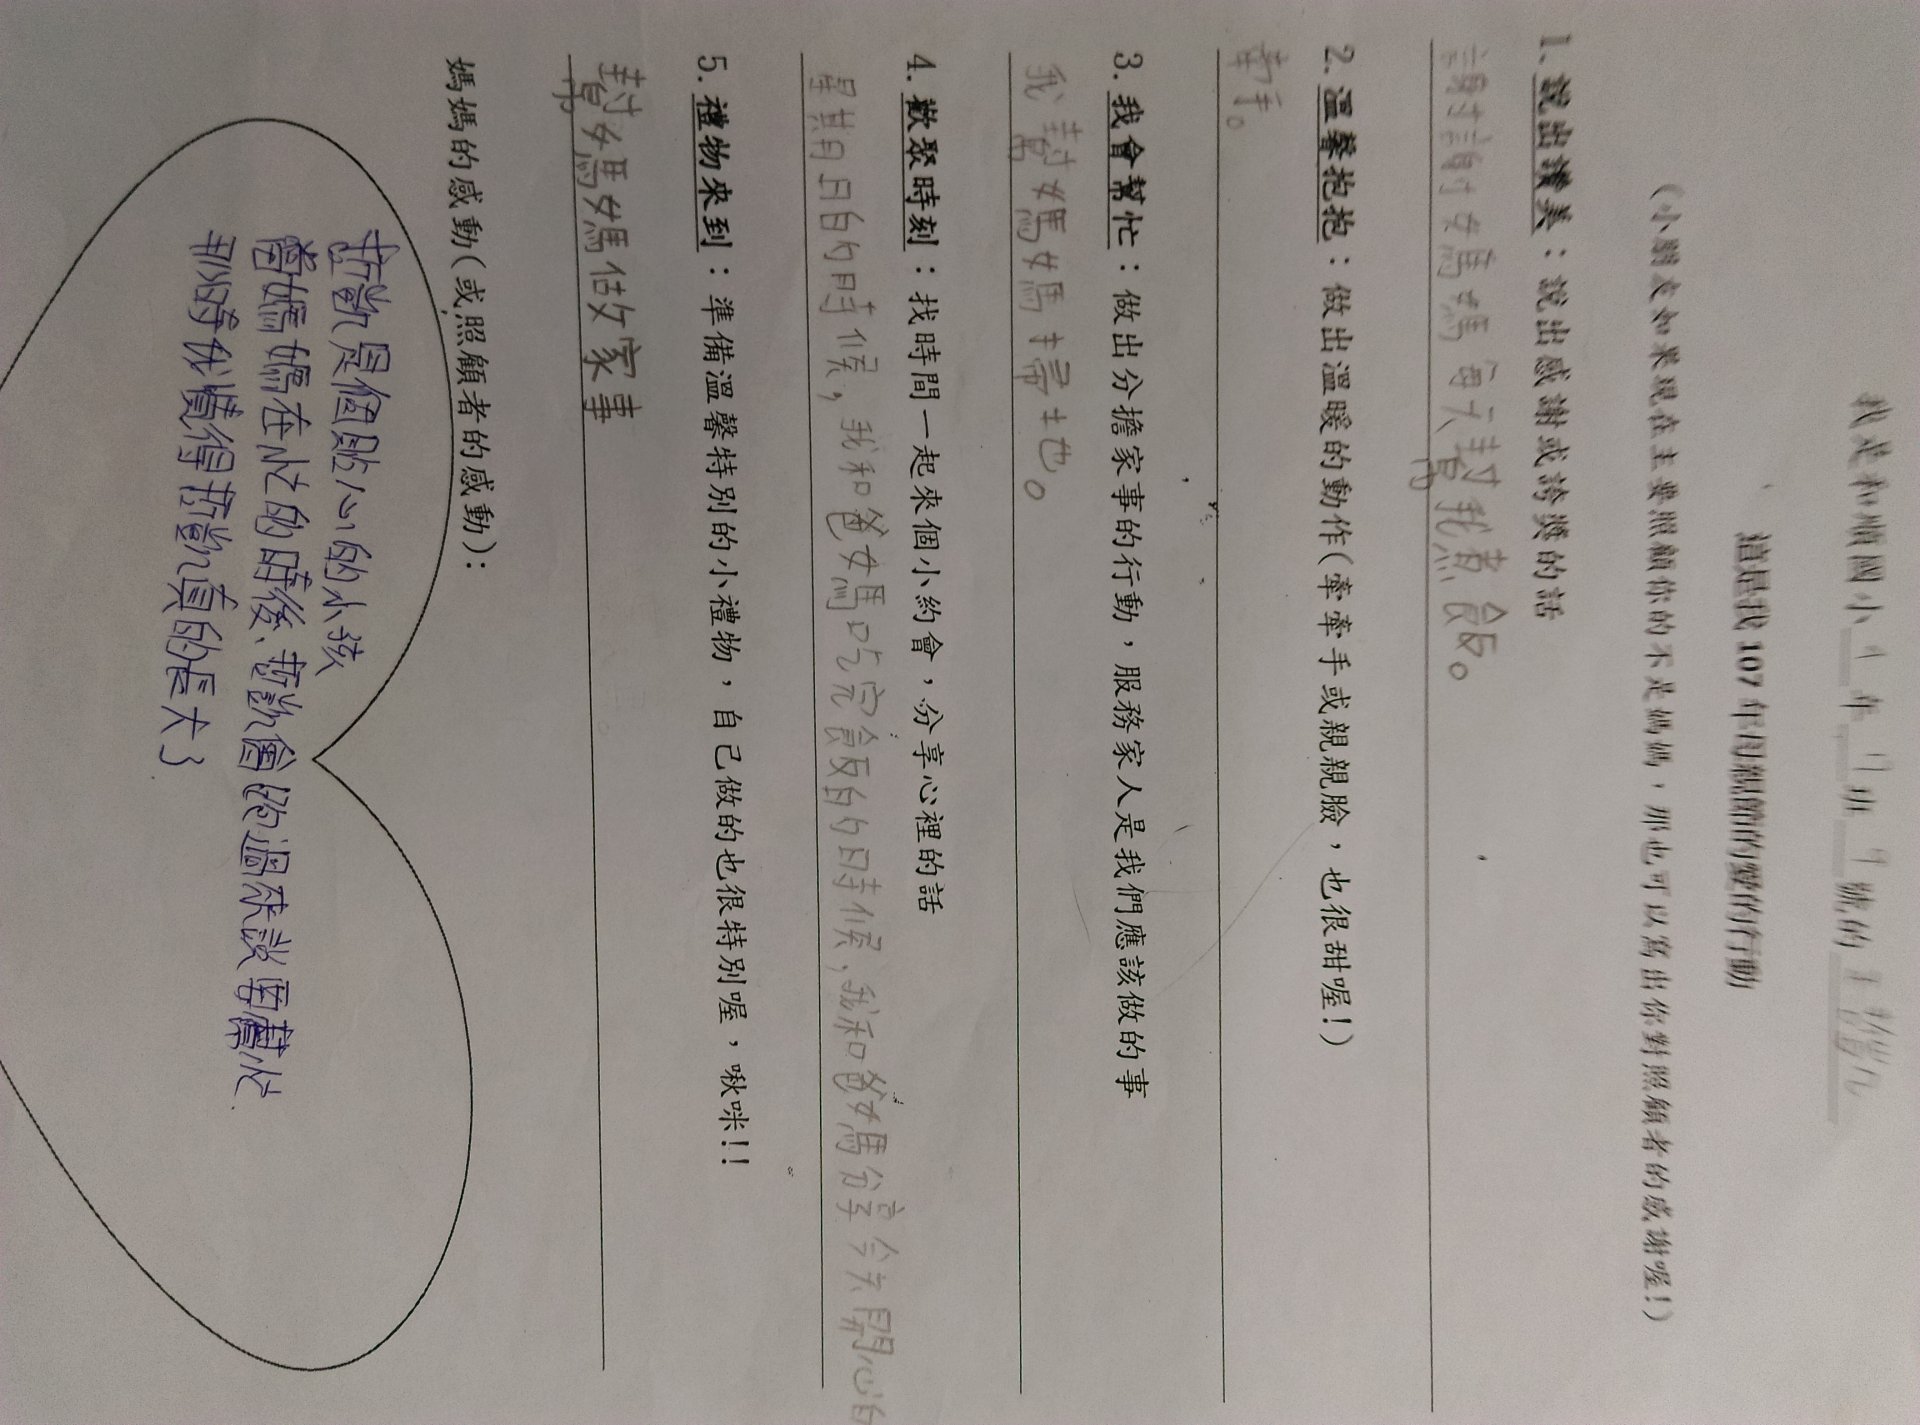 我是和順國小 年 班 號的
這是我 107 年母親節的愛的行動
(小朋友如果現在主要照顧你的不是媽媽，那也可以寫出你對照顧者的感謝喔!)
1. 說出讚美：說出感謝或誇獎的話
謝謝媽媽每天幫我煮飯。
2. 溫馨抱抱：做出溫暖的動作(牽牽手或親親臉，也很甜喔!)
牽手。
3. 我會幫忙：做出分擔家事的行動，服務家人是我們應該做的事
我幫媽媽掃地。
4. 歡聚時刻：找時間一起來個小約會，分享心裡的話
星期日的時候，我和爸媽吃完飯的時候，我和爸媽分享今天開心的
5. 禮物來到：準備溫馨特別的小禮物，自己做的也很特別喔，啾咪!!
幫媽媽做家事
媽媽的感動(或照顧者的感動)：
哲凱是個貼心的小孩
當媽媽在忙的時後、哲凱會跑過來說要幫忙
那時我覺得哲凱真的長大了